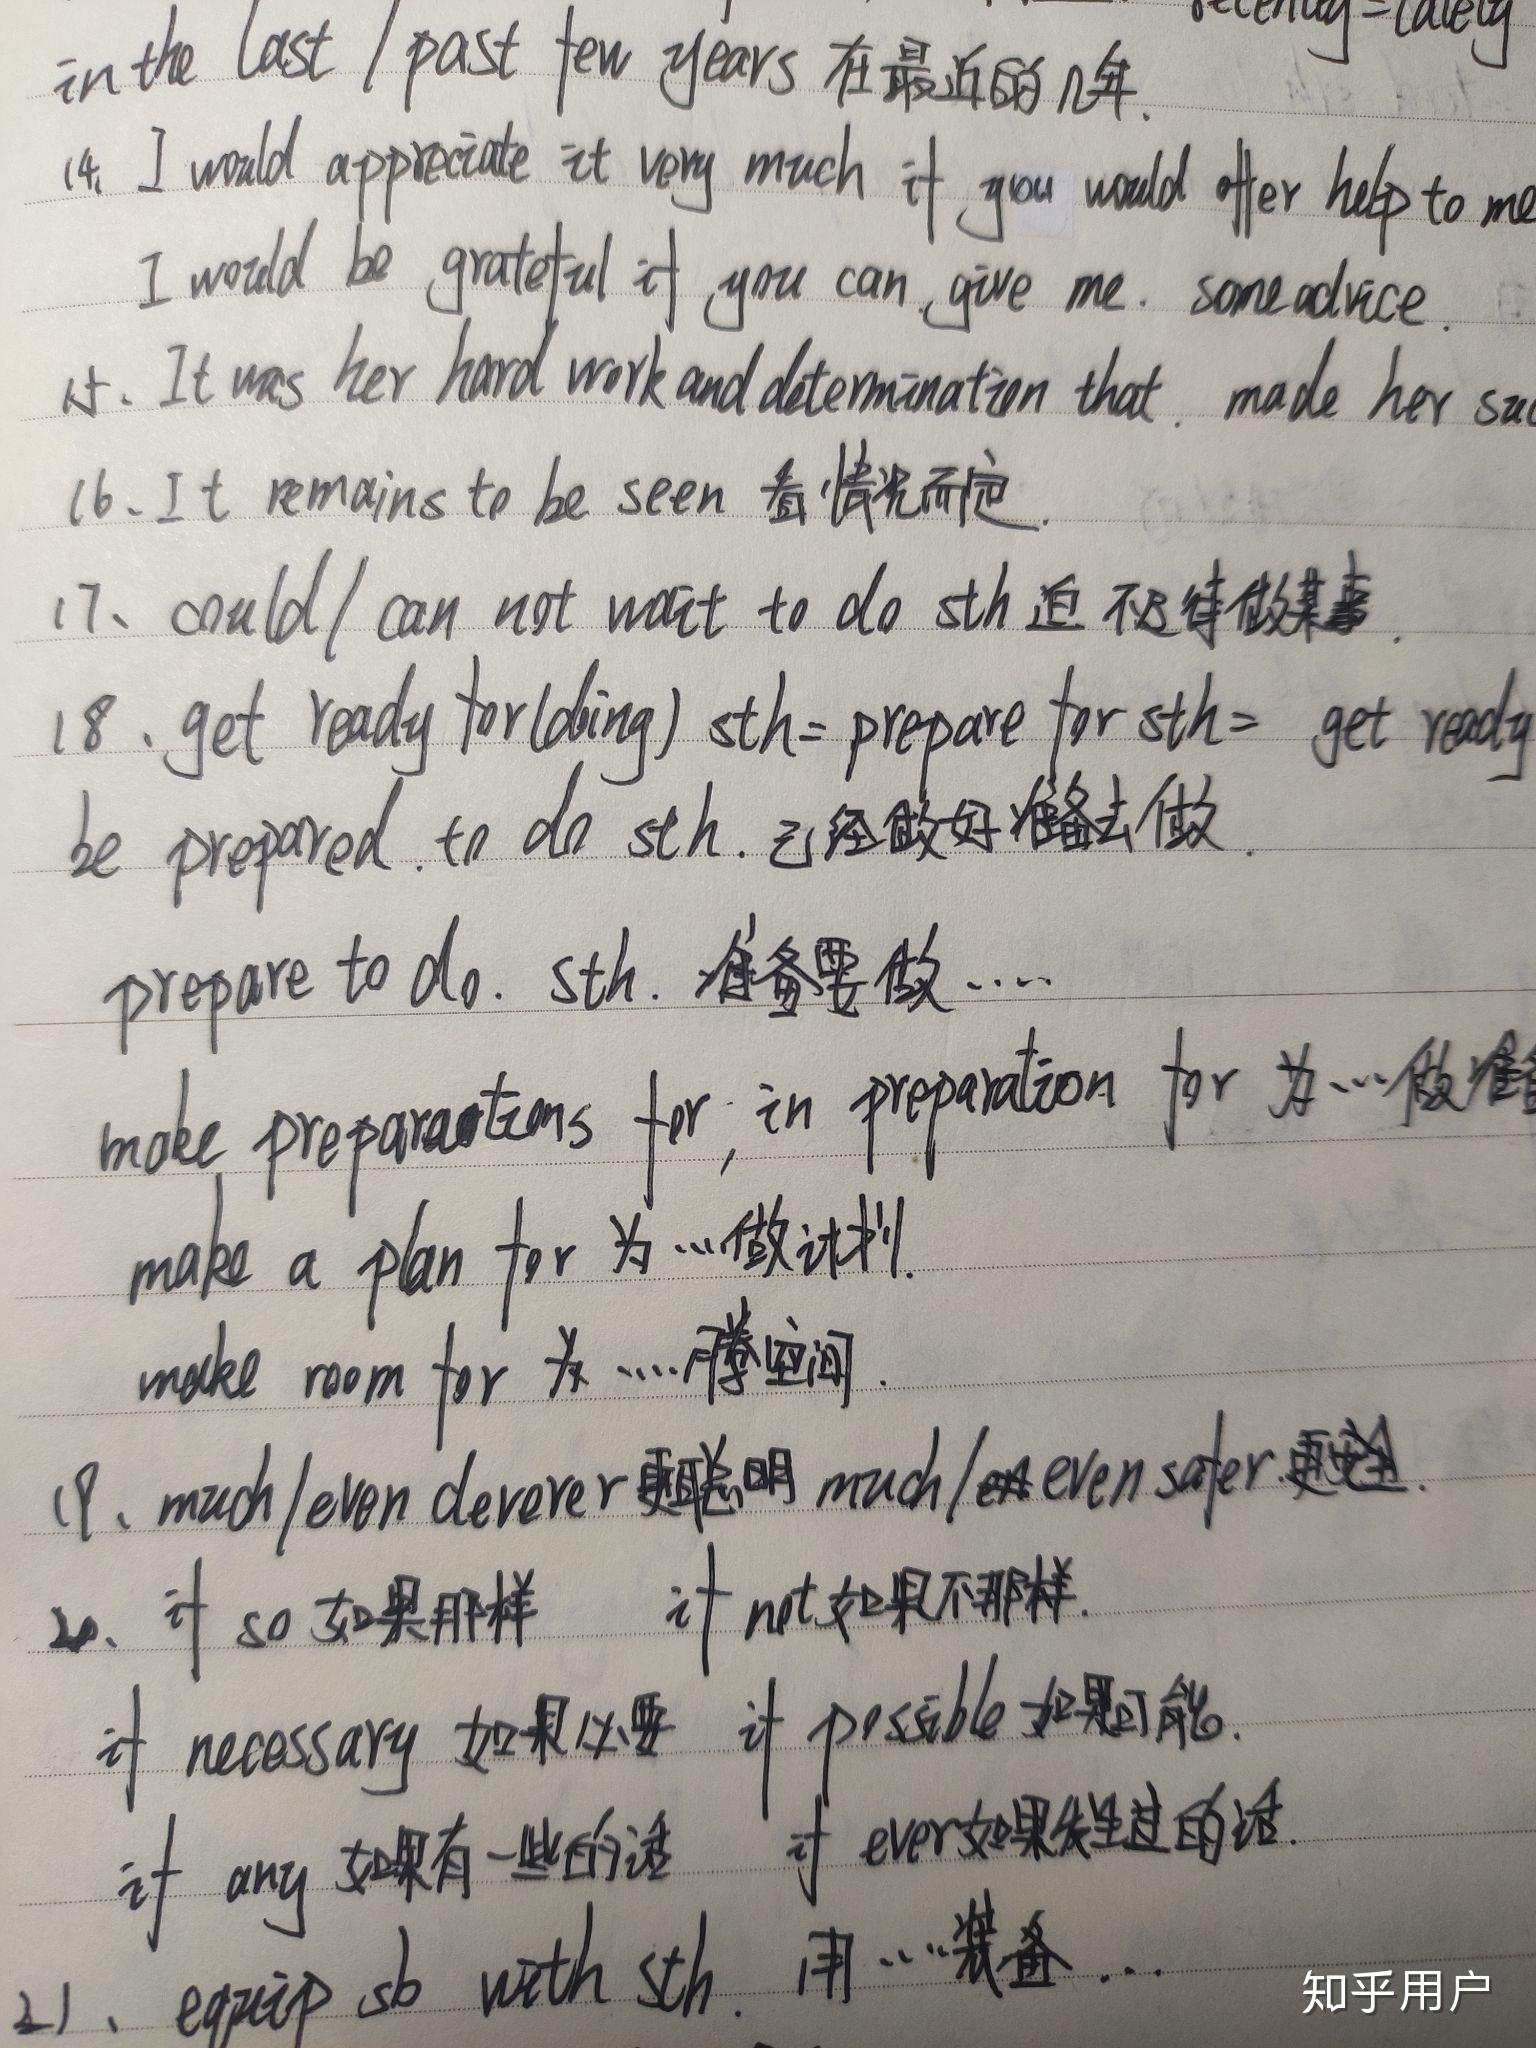 recently=lately
in the last / past few years 在最近的几年.
14. I would appreciate it very much if you would offer help to me
I would be grateful if you can give me. some advice.
15. It was her hard work and determination that. made her suc
16. It remains to be seen 看情况而定.
17、could / can not wait to do sth 迫不及待做某事.
18. get ready for (doing) sth = prepare for sth = get ready
be prepared. to do sth. 已经做好准备去做.
prepare to do. sth. 准备要做....
make preparations for, in preparation for 为...做准备
make a plan for 为...做计划.
make room for 为....腾空间.
19、much/even cleverer 更聪明 much/even safer 更安全.
20、if so 如果那样 if not 如果不那样.
if necessary 如果必要 if possible 如果可能.
if any 如果有一些的话 if ever 如果发生过的话.
21、equip sb with sth. 用....装备...
知乎用户